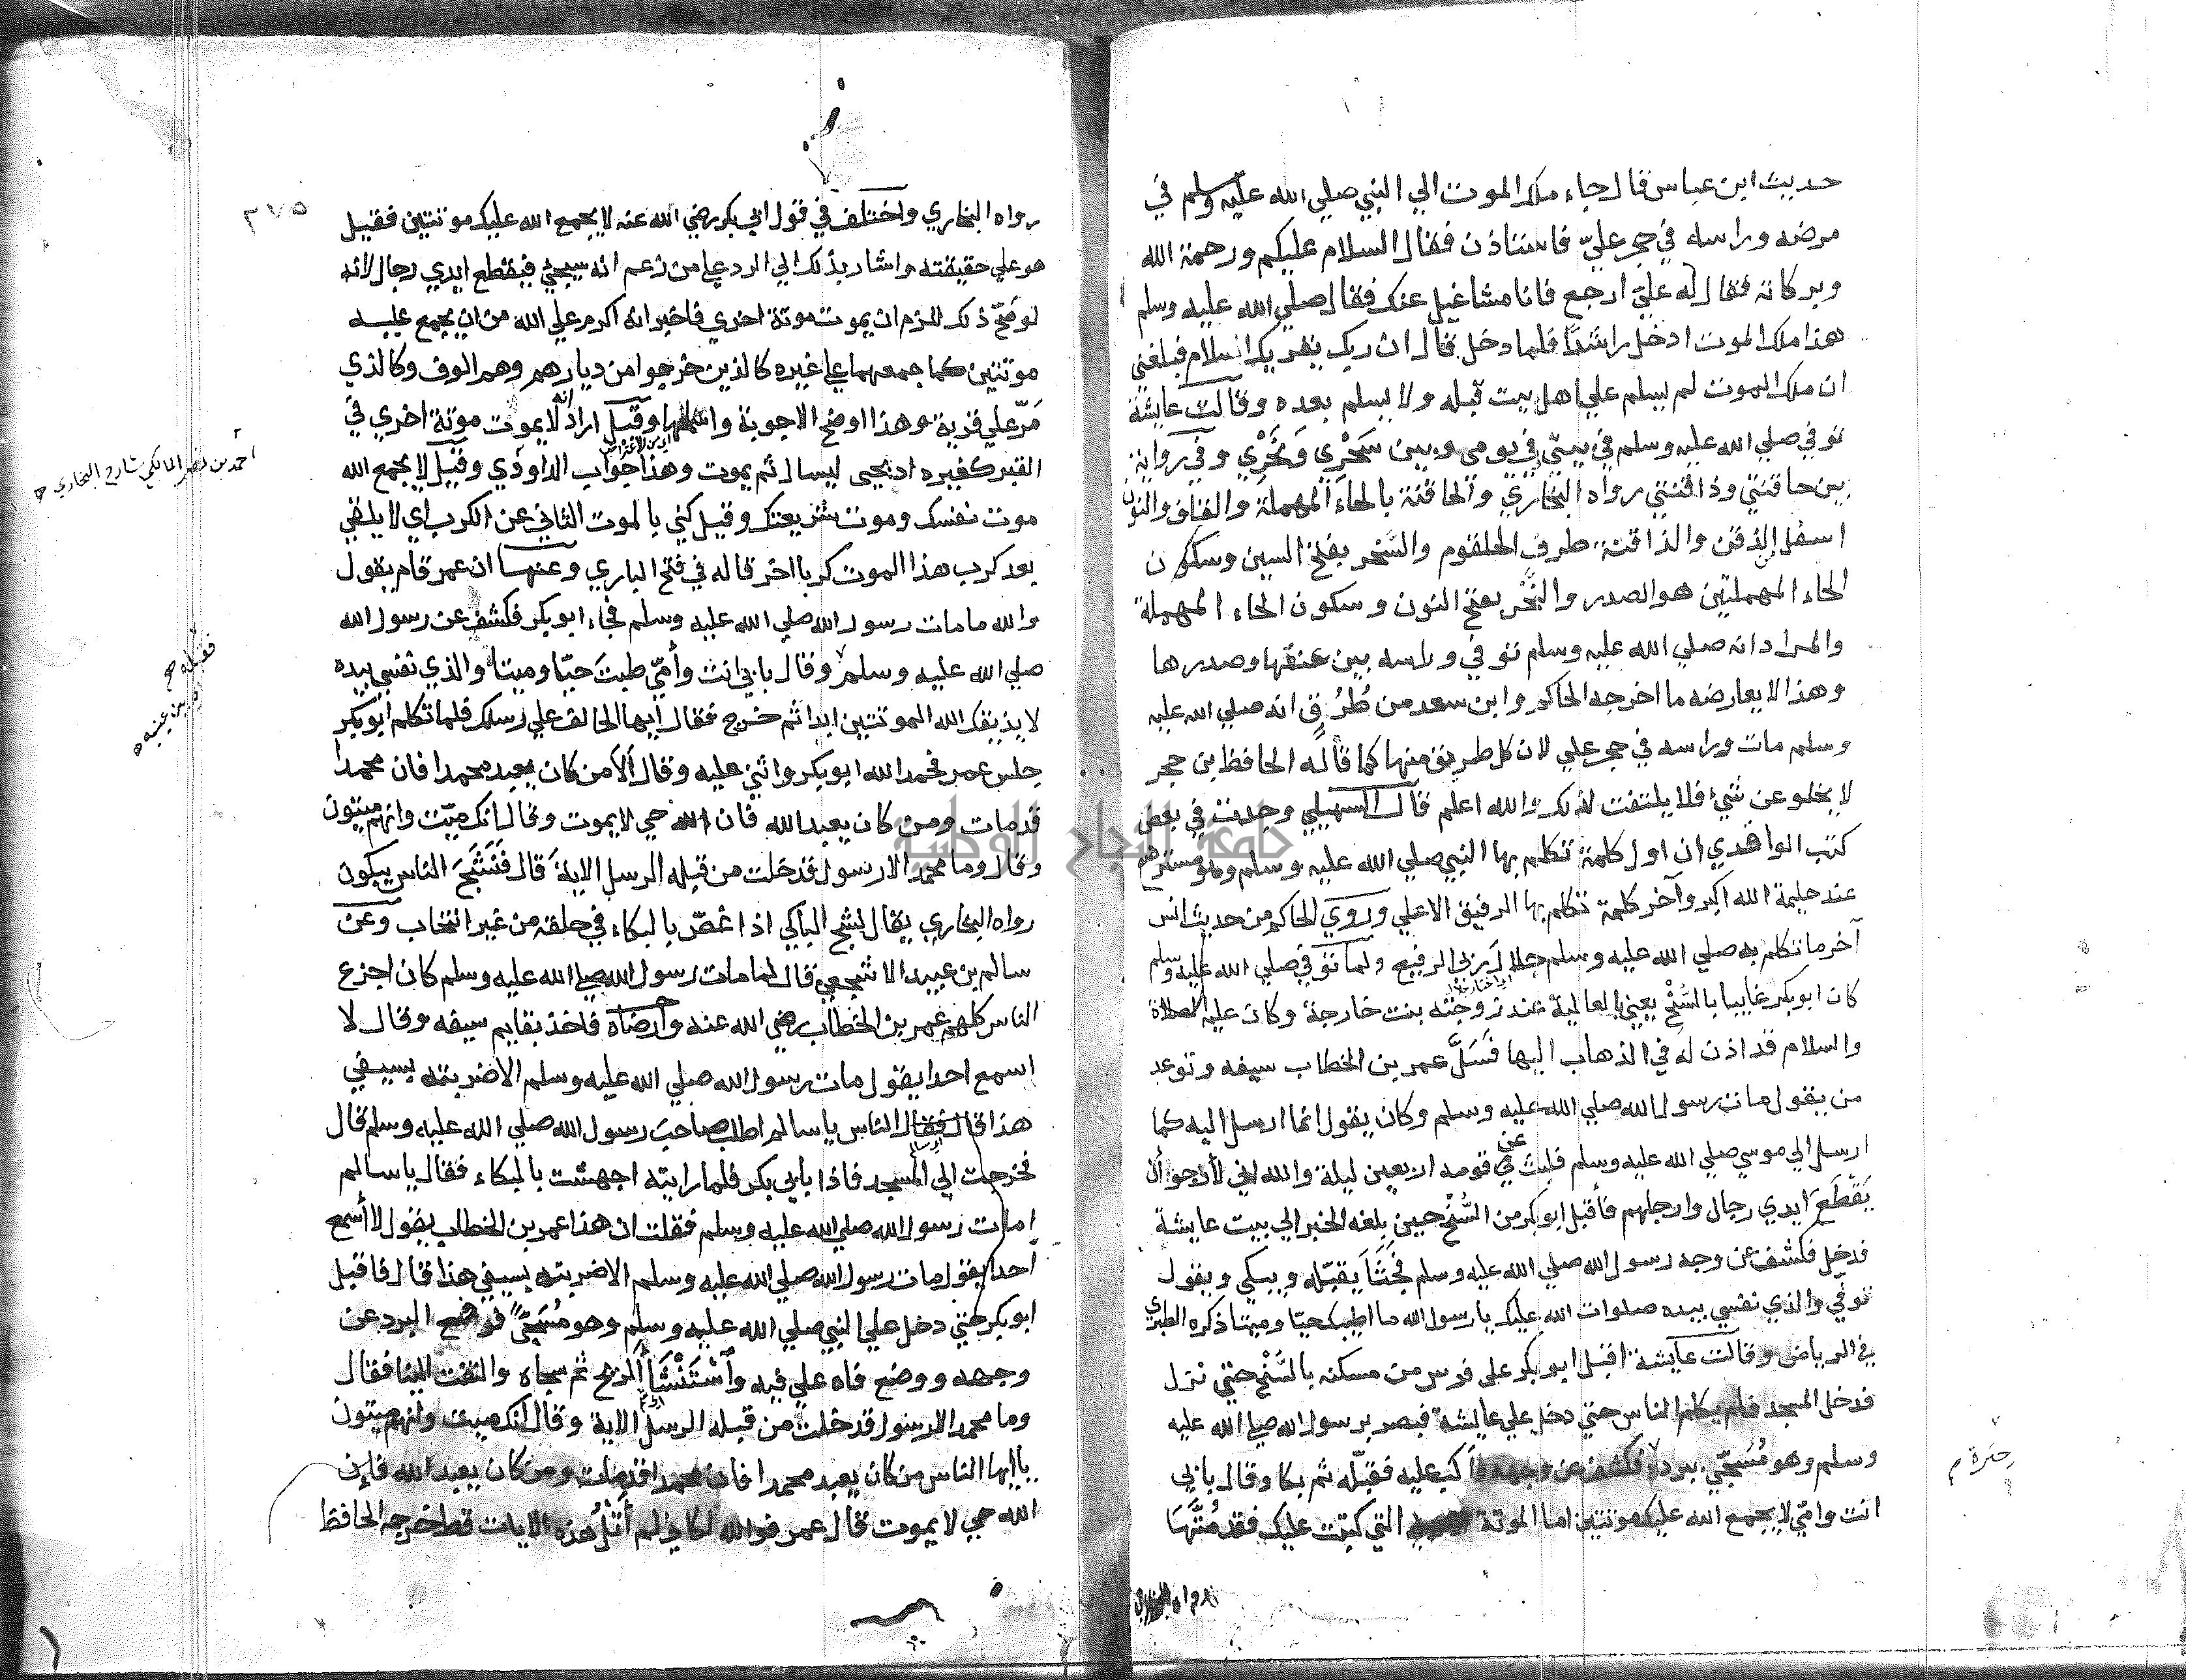 حديث ابن عباس قال جاء ملك الموت الي النبي صلي الله عليه وسلم في
مرضه وراسه في حجر عليّ فاستاذن فقال السلام عليكم ورحمة الله
وبركاته فقال له عليّ ارجع فانا مشاغيل عنك فقال صلي الله عليه وسلم
هذا ملك الموت ادخل راشدًا فلما دخل قال ان ربك يقريك السلام فبلغني
ان ملك الموت لم يسلم علي اهل بيت قبله ولا يسلم بعده وقالت عايشة
توفي صلي الله عليه وسلم في بيتي في يومي وبين سَحْرِي وَنَحْرِي وفي رواية
بين حاقنتي وذاقنتي رواه البخاري والحاقنة بالحاء المهملة والقاف والنون
اسفل الذقن والذاقنة طرف الحلقوم والسَّحر بفتح السين وسكون
الحاء المهملتين هو الصدر والنَّحْر بفتح النون وسكون الحاء المهملة
والمراد انه صلي الله عليه وسلم توفي وراسه بين عنقها وصدرها
وهذا لا يعارضه ما اخرجه الحاكم وابن سعد من طُرُقٍ انه صلي الله عليه
وسلم مات وراسه في حجر علي لان كل طريق منها كما قاله الحافظ بن حجر
لا يخلو عن شيء فلا يلتفت لذلك والله اعلم قال السهيلي وجدت في بعض
كتب الواقدي ان اول كلمة تكلم بها النبي صلي الله عليه وسلم وهو مسترضع
عند حليمة الله اكبر وآخر كلمة تكلم بها الرفيق الاعلي وروي الحاكم من حديث انس
آخر ما تكلم به صلي الله عليه وسلم جلال ربي الرفيع ولما توفي صلي الله عليه وسلم
كان ابو بكر غايبا بالسُّنْح يعني بالعالية عند زوجته بنت خارجة وكان عليه الصلاة
والسلام قد اذن له في الذهاب اليها فَسَلَّ عمر بن الخطاب سيفه وتوعد
من يقول مات رسول الله صلي الله عليه وسلم وكان يقول انما ارسل اليه كما
ارسل الي موسي صلي الله عليه وسلم فلبث عن قومه اربعين ليلة والله اني لأرجو أن
يَقْطَعَ ايدي رجال وارجلهم فأقبل ابو بكر من السُّنْح حين بلغه الخبر الي بيت عايشة
فدخل فكشف عن وجه رسول الله صلي الله عليه وسلم فَجَثَا يقبّله ويبكي ويقول
توفّي والذي نفسي بيده صلوات الله عليك يا رسول الله ما اطيبك حيّا وميتا ذكره الطبري
في الرياض وقالت عايشة اقبل ابو بكر علي فرس من مسكنه بالسُّنْح حتي نزل
فدخل المسجد فلم يكلم الناس حتي دخل علي عايشة فبصر برسول الله صلي الله عليه
وسلم وهو مُسَجّي ببردة فكشف عن وجهه فاكب عليه فقبّله ثم بكا وقال بابي
انت وامّي لا يجمع الله عليك موتتين اما الموتة التي كتبت عليك فقد مُتَّهَا
حبرة م
رواه البخاري
٢٧٥
رواه البخاري واختلف في قول ابي بكر رضي الله عنه لا يجمع الله عليك موتتين فقيل
هو علي حقيقته واشار بذلك الي الرد علي من زعم انه سيجئ فيقطع ايدي رجال لانه
لو صَحّ ذلك للزم ان يموت موتة اخري فاخبر انه اكرم علي الله من ان يجمع عليه
موتتين كما جمعهما علي غيره كالذين خرجوا من ديارهم وهم الوف وكالذي
مَرّ علي قرية وهذا اوضح الاجوبة واسلمها وقيل اراد انه لا يموت موتة اخري في
القبر كغيره اذ يحيي ليسال ثم يموت وهذا جواب الداوَدي وقيل لا يجمع الله
موت نفسك وموت شريعتك وقيل كني بالموت الثاني عن الكرب اي لا يلقي
بعد كرب هذا الموت كربا اخر قاله في فتح الباري وعنها ان عمر قام يقول
والله ما مات رسول الله صلي الله عليه وسلم فجاء ابو بكر فكشف عن رسول الله
صلي الله عليه وسلم وقال بابي انت وأمّي طبتَ حيّا وميتا والذي نفسي بيده
لا يذيقك الله الموتتين ابدا ثم خرج فقال ايها الحالف علي رسلك فلما تكلم ابو بكر
جلس عمر فحمد الله ابو بكر واثني عليه وقال ألا من كان يعبد محمدا فان محمدا
قد مات ومن كان يعبد الله فان الله حي لا يموت وقال انك ميّت وانهم ميتون
وقال وما محمد الا رسول قد خلت من قبله الرسل الاية قال فَنَشَجَ الناس يبكون
رواه البخاري يقال نشج الباكي اذا غصّ بالبكاء في حلقه من غير انتحاب وعن
سالم بن عبيد الاشجعي قال لما مات رسول الله صلي الله عليه وسلم كان اجزع
الناس كلهم عمر بن الخطاب رضي الله عنه وارضاه فاخذ بقايم سيفه وقال لا
اسمع احدا يقول مات رسول الله صلي الله عليه وسلم الا ضربته بسيفي
هذا قال فقال الناس يا سالم اطلب صاحب رسول الله صلي الله عليه وسلم قال
فخرجت الي المسجد فاذا بابي بكر فلما رايته اجهشت بالبكاء فقال يا سالم
امات رسول الله صلي الله عليه وسلم فقلت ان هذا عمر بن الخطاب يقول لا أسمع
احدا يقول مات رسول الله صلي الله عليه وسلم الا ضربته بسيفي هذا قال فاقبل
ابو بكر حتي دخل علي النبي صلي الله عليه وسلم وهو مُسَجّيً فوضع البرد عن
وجهه ووضع فاه علي فيه وَاَسْتَنْشَأَ الريح ثم سجاه والتفت الينا فقال
وما محمد الا رسول قد خلت من قبله الرسل الاية وقال انك ميت وانهم ميتون
يا ايها الناس من كان يعبد محمدا فان محمدا قد مات ومن كان يعبد الله فان
الله حي لا يموت قال عمر فوالله لكاني لم أَتْلُ هذه الايات قط خرجه الحافظ
احمد بن نصر المالكي شارح البخاري
فقبله صح
بين عينيه
جامعة النجاح الوطنية